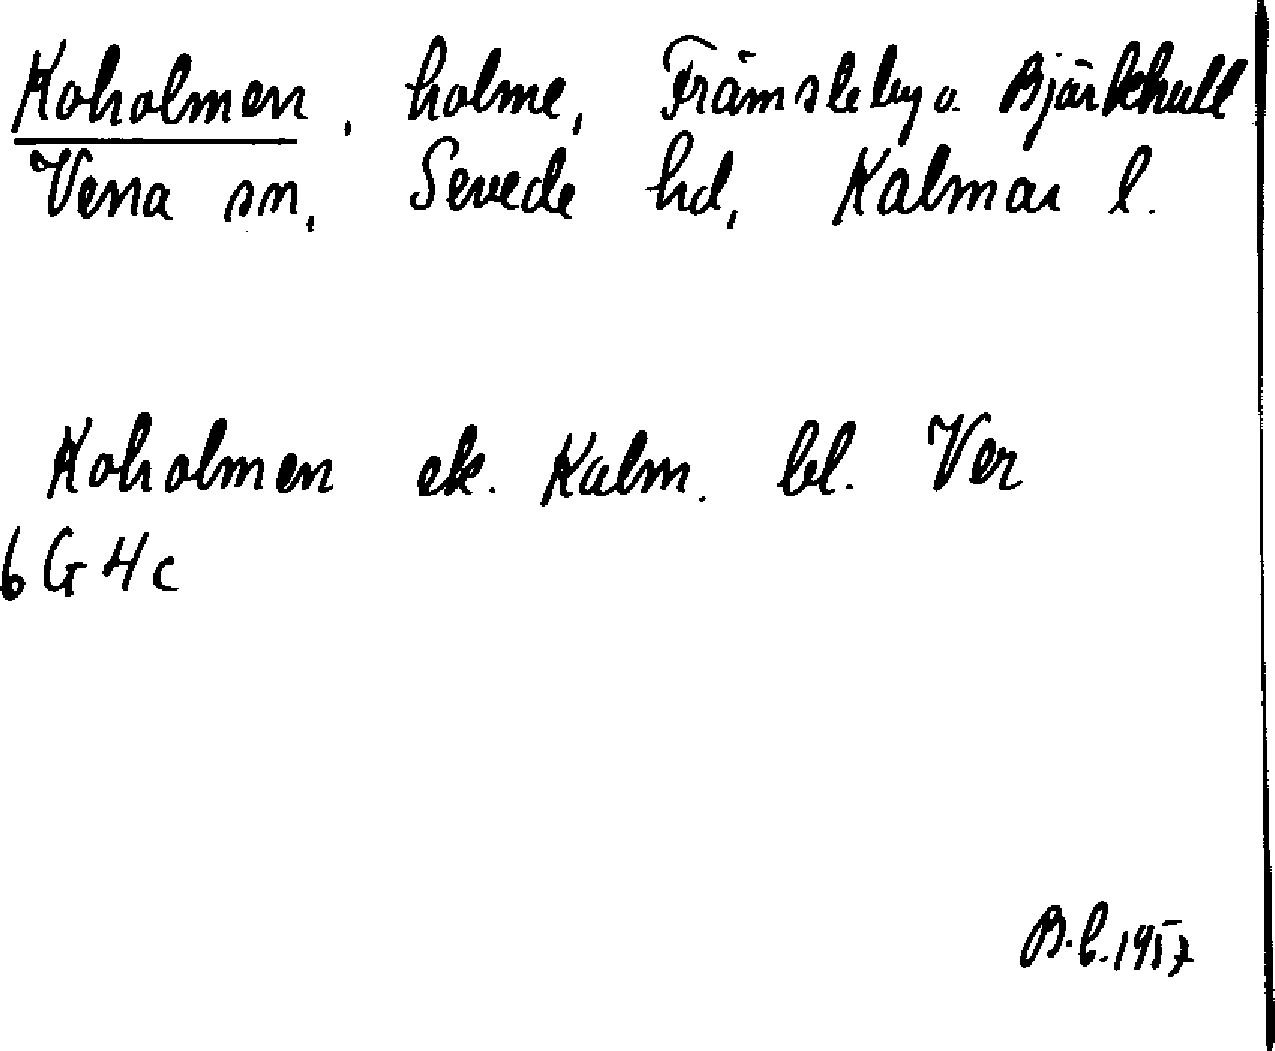 Koholmen, holme, Främsteby o. Björkhult
Vena sn, Sevede hd, Kalmar l.
Koholmen ek. Kalm. bl. Ver
6 G 4 c
B.b. 1957